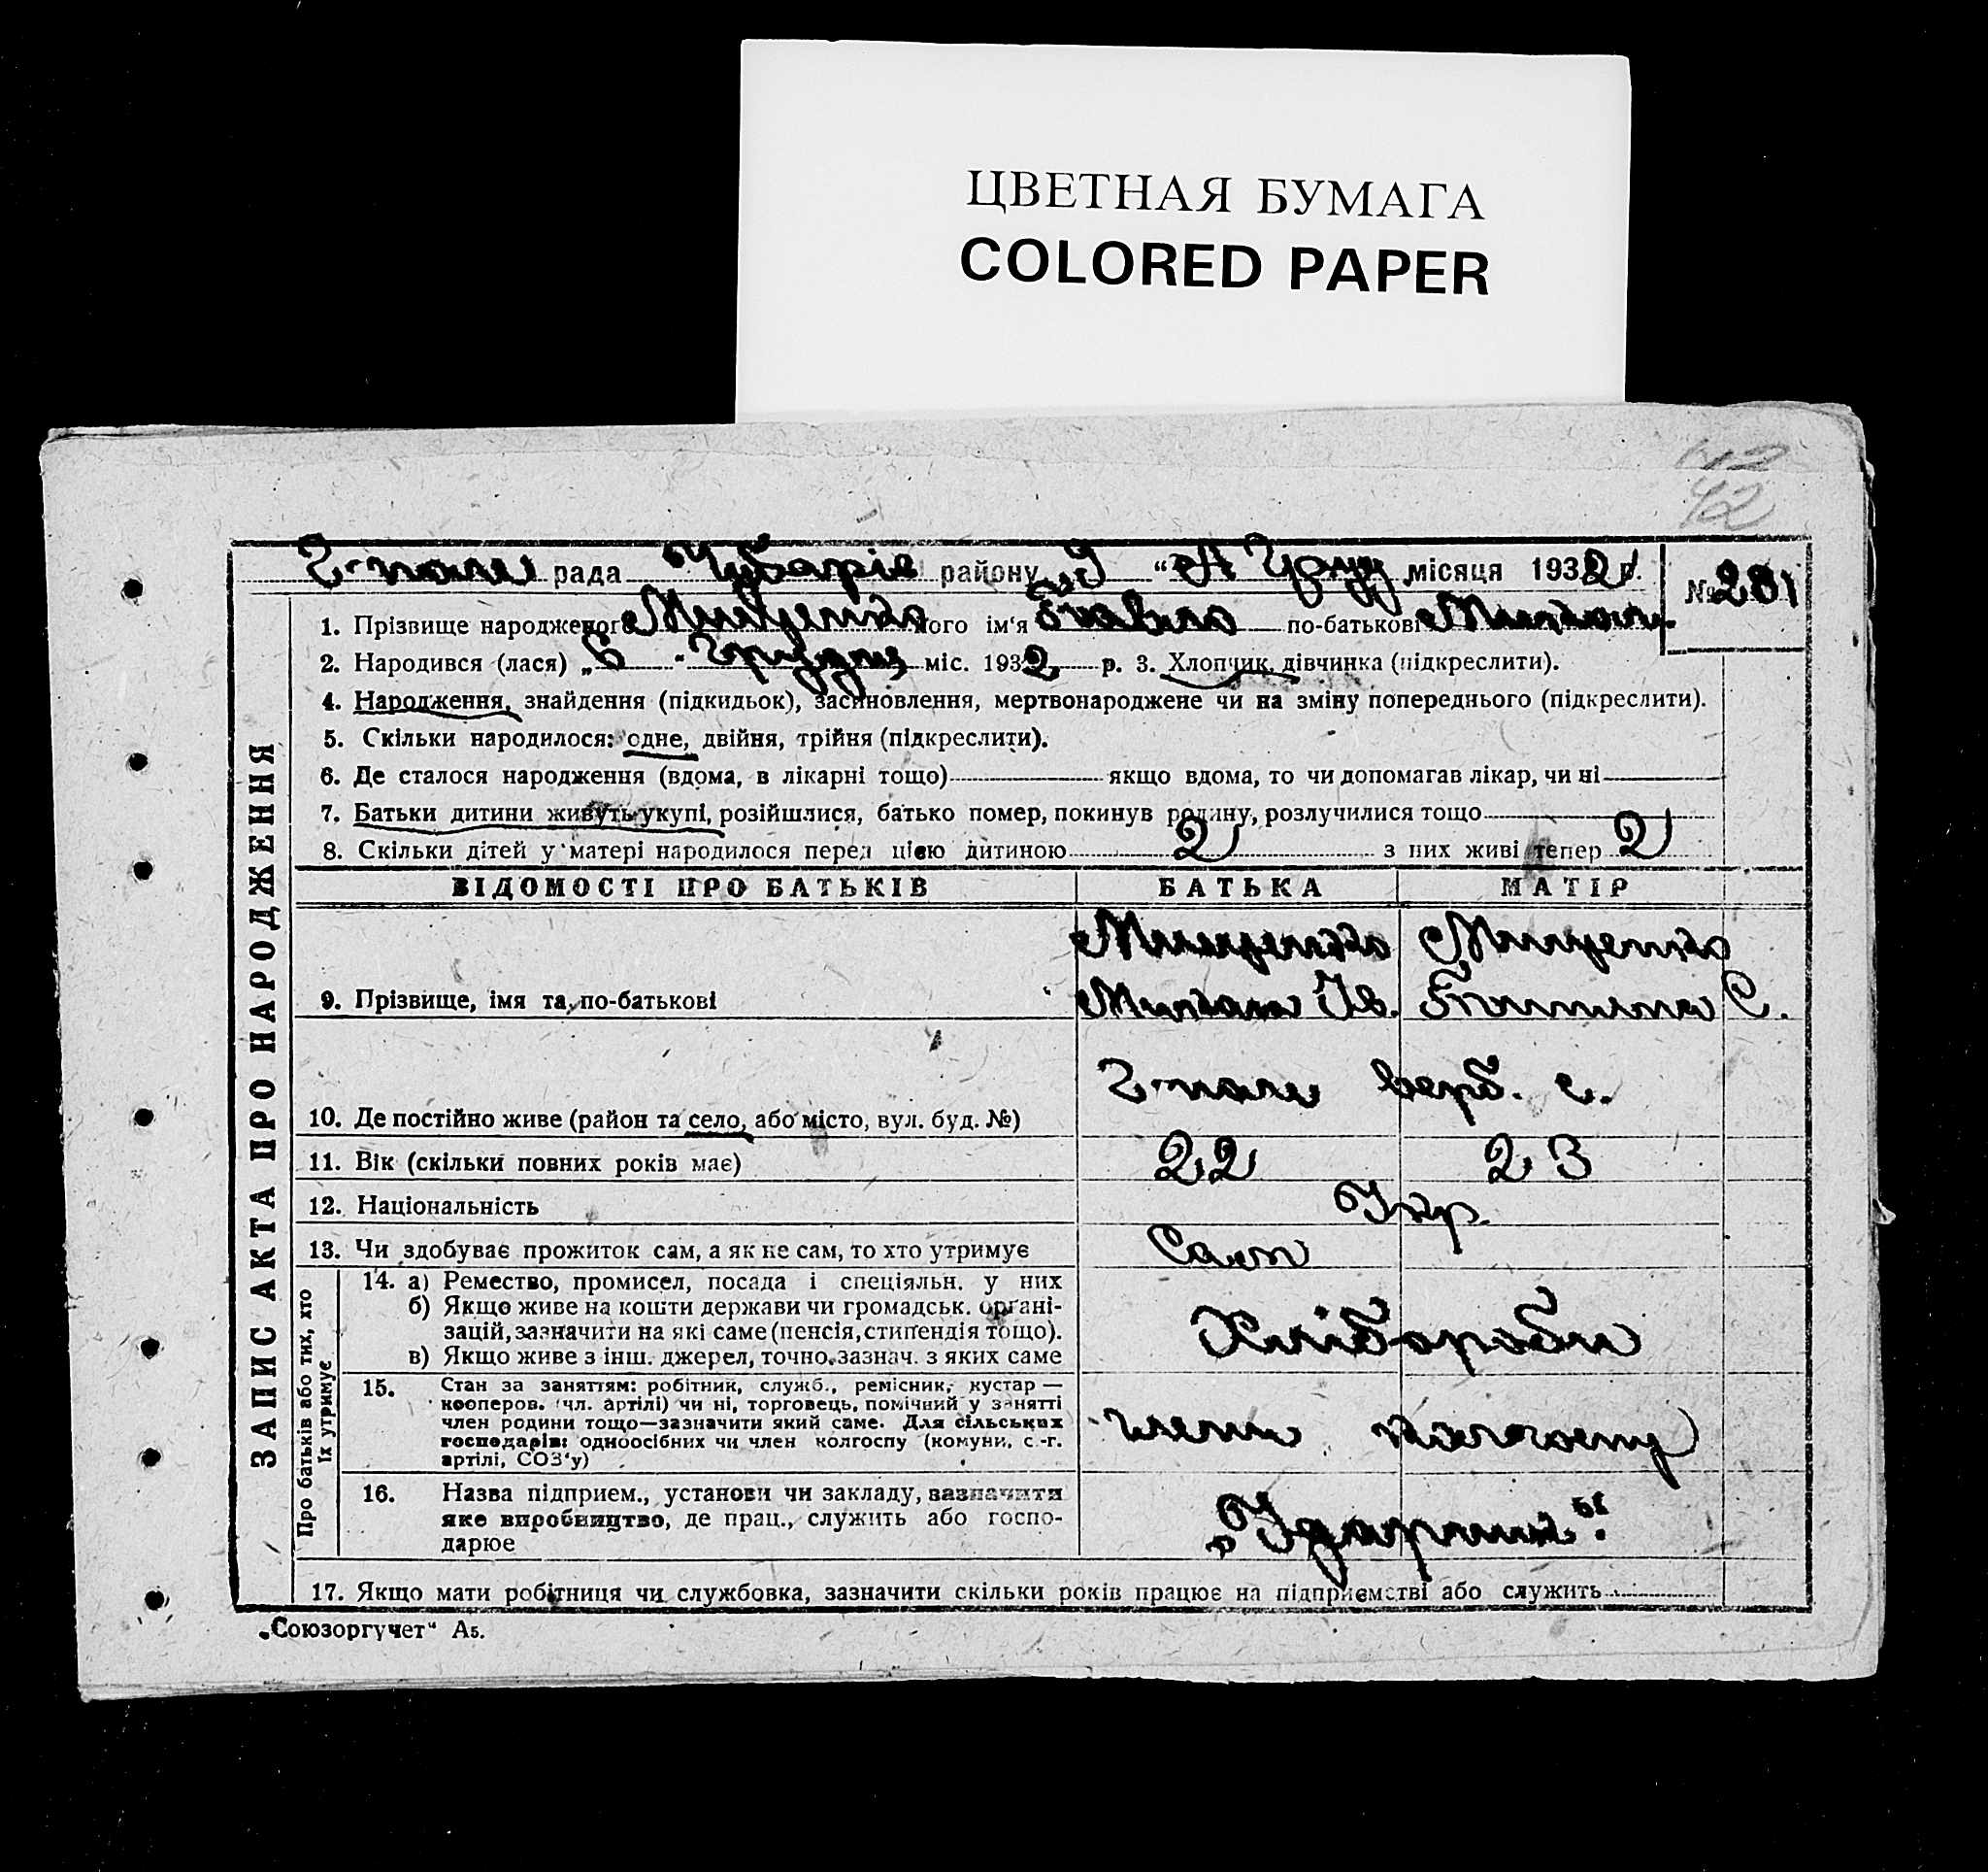 ЦВЕТНАЯ БУМАГА
COLORED PAPER
42
рада Чубарів району „9“ місяця 1932 р. № 281
1. Прізвище народженого Мищенко його ім'я Павло по-батькові
2. Народився (лася) „6“ Грудня міс. 1932 р. 3. Хлопчик, дівчинка (підкреслити).
4. Народження, знайдення (підкидьок), засиновлення, мертвонароджене чи на зміну попереднього (підкреслити).
5. Скільки народилося: одне, двійня, трійня (підкреслити).
6. Де сталося народження (вдома, в лікарні тощо) якщо вдома, то чи допомагав лікар, чи ні
7. Батьки дитини живуть укупі, розійшлися, батько помер, покинув родину, розлучилися тощо
8. Скільки дітей у матері народилося перед цією дитиною 2 з них живі тепер 2
ВІДОМОСТІ ПРО БАТЬКІВ БАТЬКА МАТІР
Мищенко Мищенко
9. Прізвище, імя та по-батькові Ів. С.
10. Де постійно живе (район та село, або місто, вул. буд. №)
11. Вік (скільки повних років має) 22 23
12. Національність Укр.
13. Чи здобуває прожиток сам, а як не сам, то хто утримує Сам
14. а) Ремество, промисел, посада і спеціяльн. у них
б) Якщо живе на кошти держави чи громадськ. органі-
зацій, зазначити на які саме (пенсія, стипендія тощо). Хлібороби
в) Якщо живе з інш. джерел, точно зазнач. з яких саме
15. Стан за заняттям: робітник, служб., ремісник, кустар —
кооперов. (чл. артілі) чи ні, торговець, помічний у занятті
член родини тощо—зазначити який саме. Для сільських
господарів: одноосібних чи член колгоспу (комуни, с.-г.
артілі, СОЗ'у) члени колгоспу
16. Назва підприєм., установи чи закладу, зазначити
яке виробництво, де прац., служить або госпо-
дарюе „Ударник“
17. Якщо мати робітниця чи службовка, зазначити скільки років працює на підприємстві або служить
„Союзоргучет“ А5.
ЗАПИС АКТА ПРО НАРОДЖЕННЯ
Про батьків або тих, хто
їх утримує